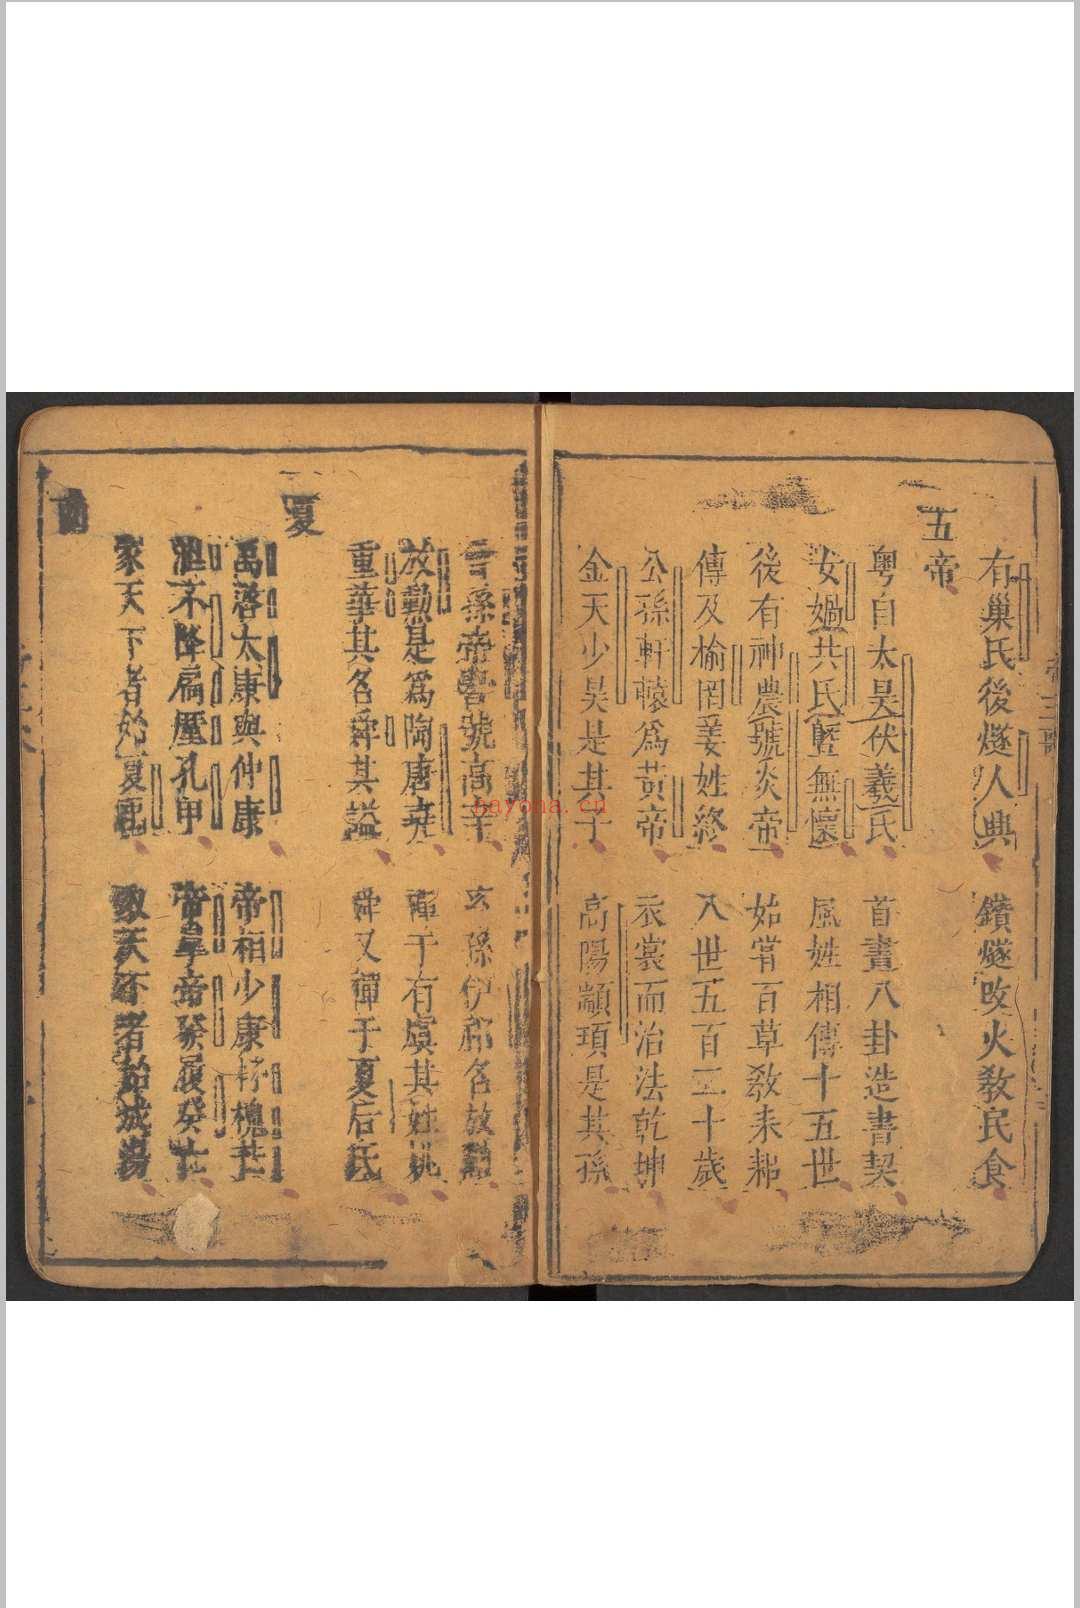 有巢氏後燧人典 鑽燧改火教民食
五帝
粵自太昊伏羲氏 首畫八卦造書契
女媧共氏曁無懷 風姓相傳十五世
後有神農號炎帝 始嘗百草教耒耜
傳及榆罔姜姓終 八世五百二十歲
公孫軒轅為黃帝 衣裳而治法乾坤
金天少昊是其子 高陽顓頊是其孫
孫帝嚳號高辛 玄孫伊祁名放勳
放勳是為陶唐堯 禪于有虞其姓姚
重華其名舜其謚 舜又禪于夏后氏
夏
禹啓太康與仲康 帝相少康杼槐芒
泄不降扃厪孔甲 帝皐帝發履癸亡
家天下者始夏
nayona.cn